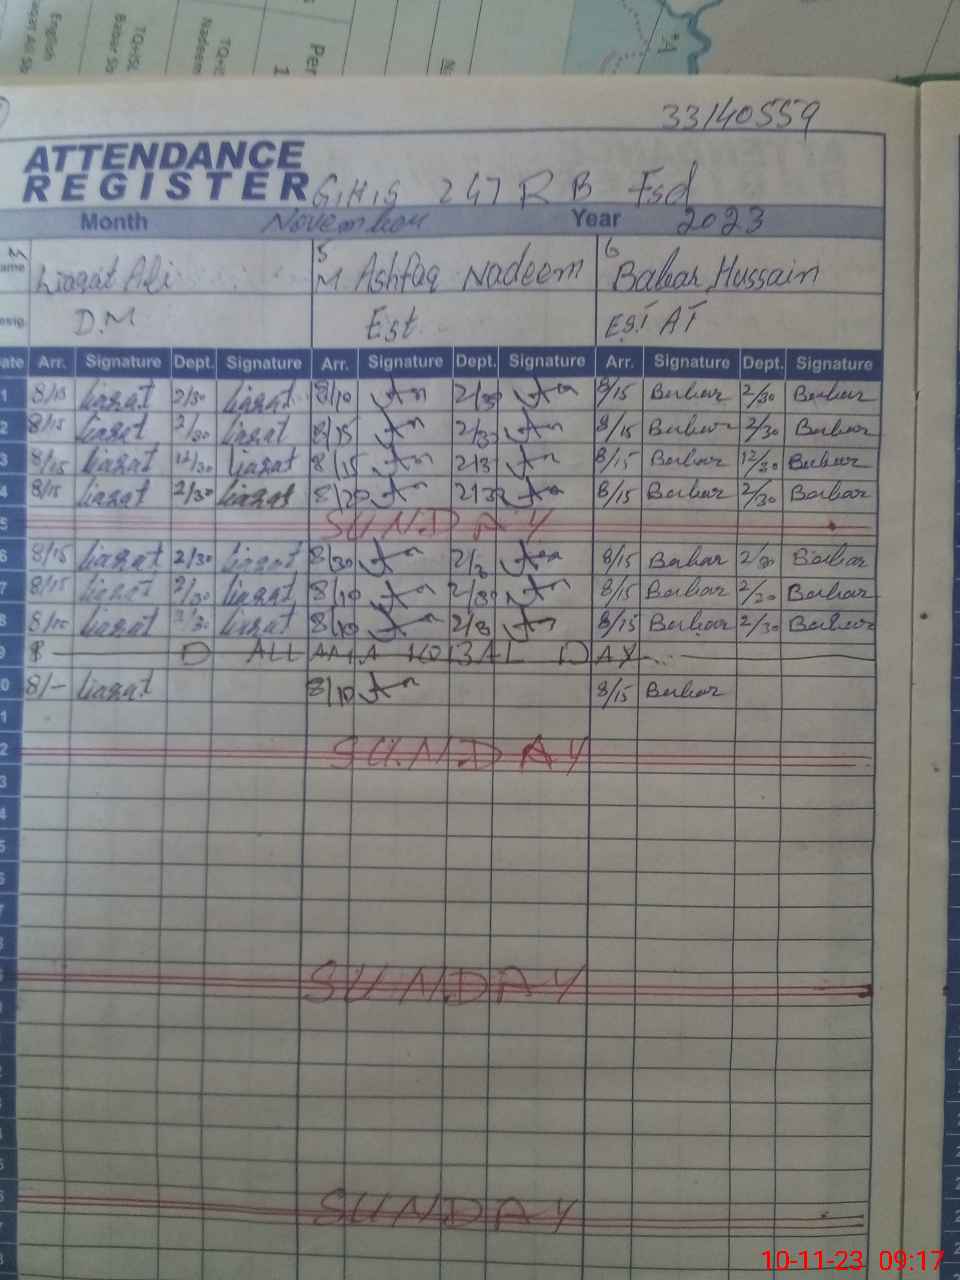 English
TQ+SL
Nadeem
TQ+
Per
1
33140559
ATTENDANCE
REGISTER G.H.S 247 R B Fsd
Month November Year 2023
ame Liaqat Ali 5 M Ashfaq Nadeem 6 Babar Hussain
esig. D.M Est. EST AT
ate Arr. Signature Dept. Signature Arr. Signature Dept. Signature Arr. Signature Dept. Signature
1 8/15 Liaqat 2/30 Liaqat 8/10 2/30 8/15 Barbar 2/30 Barbar
2 8/15 Liaqat 2/30 Liaqat 8/15 2/30 8/15 Barbar 2/30 Barbar
3 8/15 Liaqat 12/30 Liaqat 8/15 2/3 8/15 Barbar 12/30 Barbar
4 8/15 Liaqat 2/30 Liaqat 8/20 2/30 8/15 Barbar 2/30 Barbar
5 SUNDAY
6 8/15 Liaqat 2/30 Liaqat 8/30 2/3 8/15 Barbar 2/30 Barbar
7 8/15 Liaqat 2/30 Liaqat 8/10 2/30 8/15 Barbar 2/30 Barbar
8 8/15 Liaqat 2/30 Liaqat 8/10 2/3 8/15 Barbar 2/30 Barbar
9 ALLAMA IQBAL DAY
0 8/- Liaqat 8/10 8/15 Barbar
1
2 SUNDAY
3
4
5
6
7
8
SUNDAY
SUNDAY
10-11-23 09:17